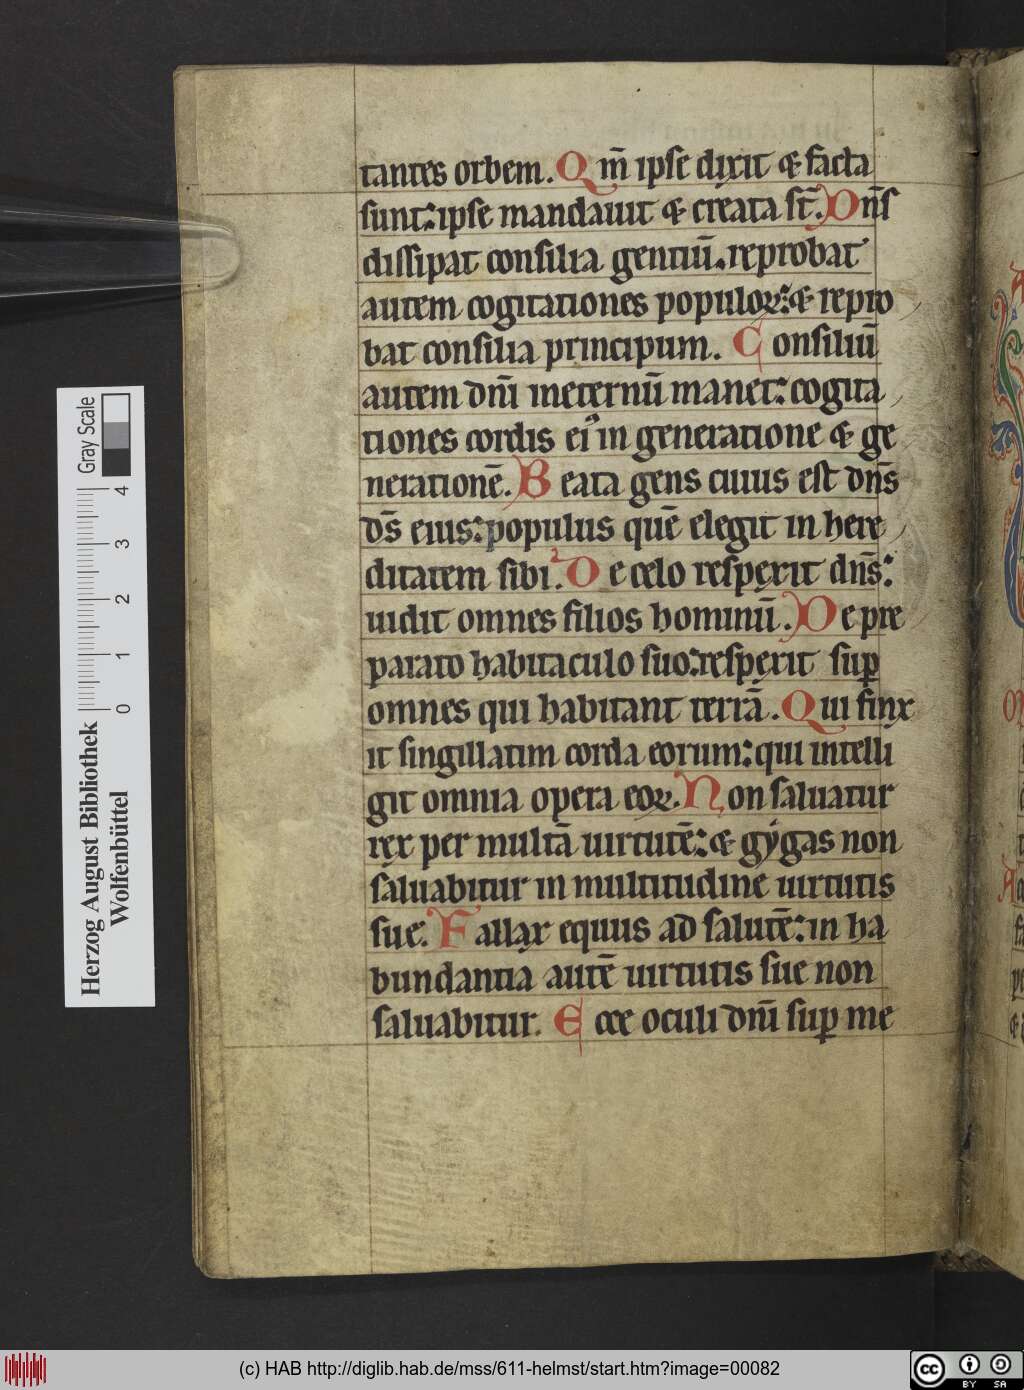 tantes orbem. Qm̄ ipse dixit & facta
sunt: ipse mandauit & creata st̄. Dn̄s
dissipat consilia gentiū. reprobat
autem cogitationes populoꝝ: & repro
bat consilia principum. Consiliū
autem dnī ineternū manet: cogita
tiones cordis eiꝰ in generatione & ge
nerationē. Beata gens cuius est dn̄s
ds̄ eius: populus quē elegit in here
ditatem sibi. De celo respexit dn̄s:
uidit omnes filios hominū. De pre
parato habitaculo suo: respexit suꝑ
omnes qui habitant terrā. Qui finx
it singillatim corda eorum: qui intelli
git omnia opera eoꝝ. Non saluatur
rex per multā uirtutē: & gygas non
saluabitur in multitudine uirtutis
sue. Fallax equus ad salutē: in ha
bundantia autē uirtutis sue non
saluabitur. Ecce oculi dnī suꝑ me
Herzog August Bibliothek
Wolfenbüttel
0 1 2 3 4
Gray Scale
(c) HAB http://diglib.hab.de/mss/611-helmst/start.htm?image=00082
cc BY SA